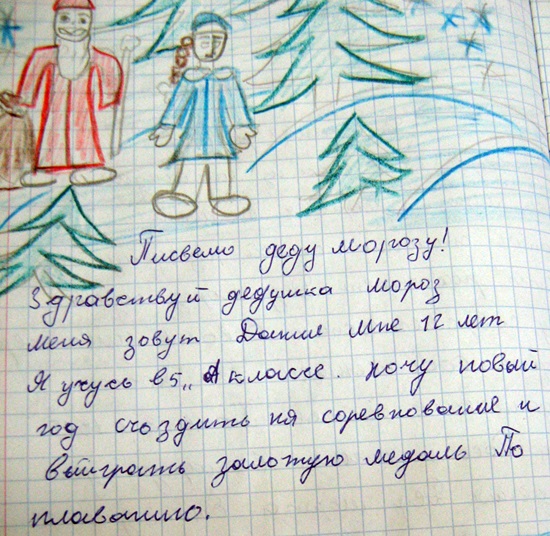 Писвемо деду морозу!
Здравствуй дедушка мороз
меня зовут Данил мне 12 лет
Я учусь в 5 „А классе. хочу новый
год съездить на соревнования и
выиграть залотую медаль По
плаванию.